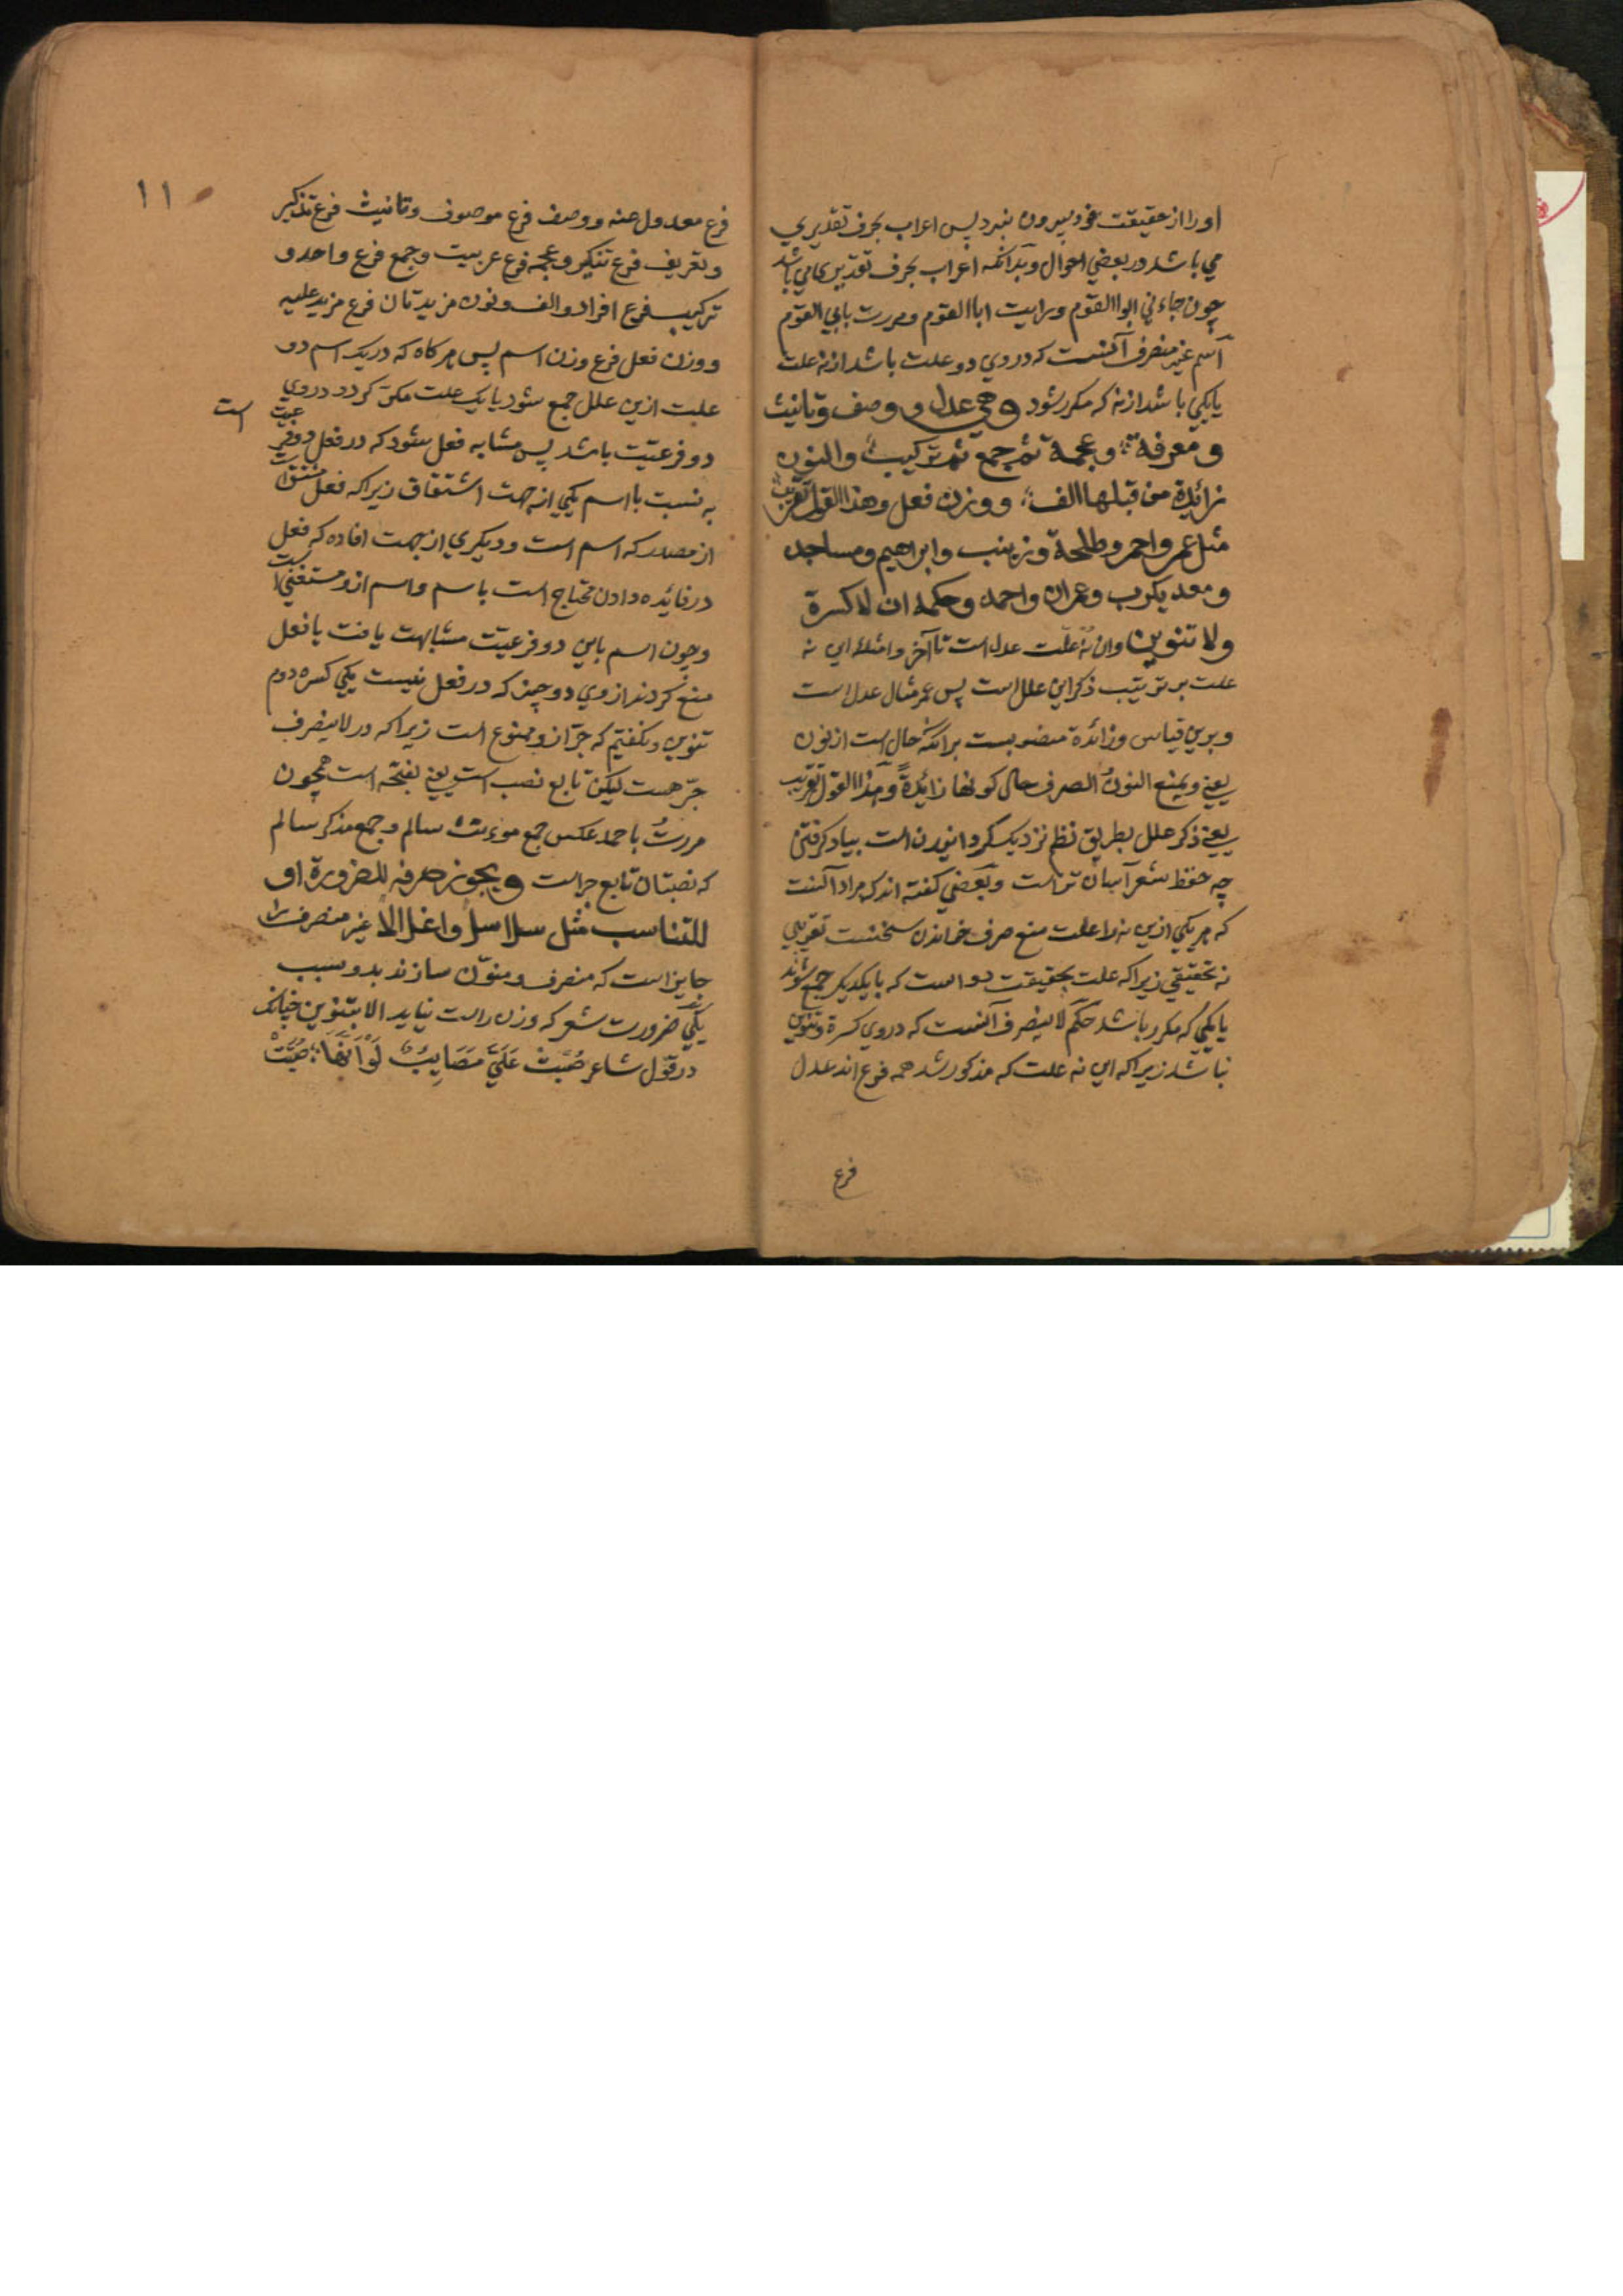 اورا از حقیقت خود بیرون نبرد پس اعراب بحرف تقدیری
می باشد در بعضی احوال و بدانکه اعراب بحرف تقدیری می باشد
چون جاءنی ابوا القوم ورایت ابا القوم ومررت بابی القوم
اسم غیر منصرف آنست که در وی دو علت باشد از نه علت
یا یکی باشد از نه که مکرر شود وهی عدل و وصف وتانیث
ومعرفة وعجمة ثم جمع ثم ترکیب والنون
زائدة من قبلها الف ووزن فعل وهذا القول تقریب
مثل عمر واحمر وطلحة وزینب وابراهیم ومساجد
ومعدیکرب وعمران واحمد وحکمه ان لا کسرة
ولا تنوین وان نه علت عدل است تا آخر وامثله این نه
علت بر ترتیب ذکر این علل است پس عمر مثال عدل است
وبرین قیاس وزائدة منصوبست برانکه حال است از نون
یعنی ویمنع النون الصرف حال کونها زائدة وهذا القول تقریب
یعنی ذکر علل بطریق نظم نزدیک گردانیدن است بیاد گرفتن
چه حفظ شعر آسان تر است وبعضی گفته اند که مراد آنست
که هر یکی ازین نه را علت منع صرف خواندن سخنست تقریبی
نه تحقیقی زیرا که علت بحقیقت دو است که بایکدیگر جمع شوند
یا یکی که مکرر باشد حکم لا ینصرف آنست که در وی کسرة وتنوین
نباشد زیرا که این نه علت که مذکور شد همه فرع اند عدل
فرع
۱۱
فرع معدول عنه ووصف فرع موصوف وتانیث فرع تذکیر
وتعریف فرع تنکیر وعجمه فرع عربیت وجمع فرع واحد و
ترکیب فرع افراد والف ونون مزیدتان فرع مزید علیه
ووزن فعل فرع وزن اسم پس هرکاه که در یک اسم دو
علت ازین علل جمع شود یا یک علت مکرر گردد در وی
دو فرعیت باشد پس مشابه فعل شود که در فعل دو فرعیت است
به نسبت با اسم یکی از جهت اشتقاق زیرا که فعل مشتق است
از مصدر که اسم است ودیگری از جهت افاده که فعل
در فائده دادن محتاج است باسم واسم ازو مستغنی است
وچون اسم باین دو فرعیت مشابهت یافت با فعل
منع کردند از وی دو چیز که در فعل نیست یکی کسره دوم
تنوین ونگفتیم که جر ازو ممنوع است زیرا که در لا ینصرف
جر هست لیکن تابع نصب است یعنی بفتحه است همچون
مررت باحمد عکس جمع مؤنث سالم وجمع مذکر سالم
که نصبشان تابع جر است ویجوز صرفه للضرورة او
للتناسب مثل سلاسلا واغلالا غیر منصرف را
جایز است که منصرف ومنون سازند بدو سبب
یکی ضرورت شعر که وزن راست نیاید الا بتنوین چنانکه
در قول شاعر صُبَّتْ عَلَیَّ مَصَایِبُ لَوْ اَنَّهَا صُبَّتْ